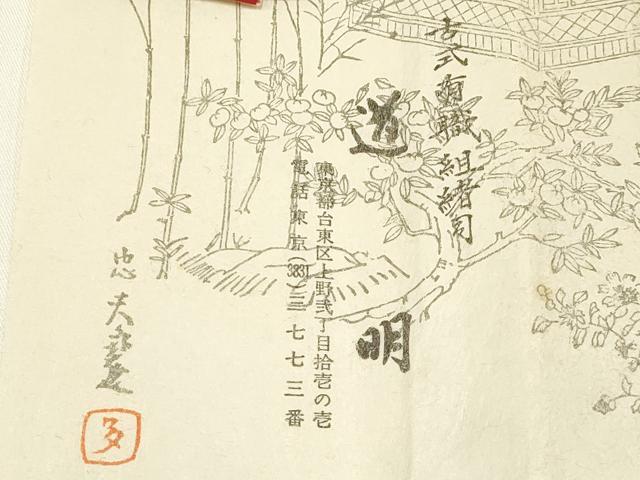 古式有職組緒司
道明
東京都台東区上野弐丁目拾壱の壱
電話東京(383)三七七三番